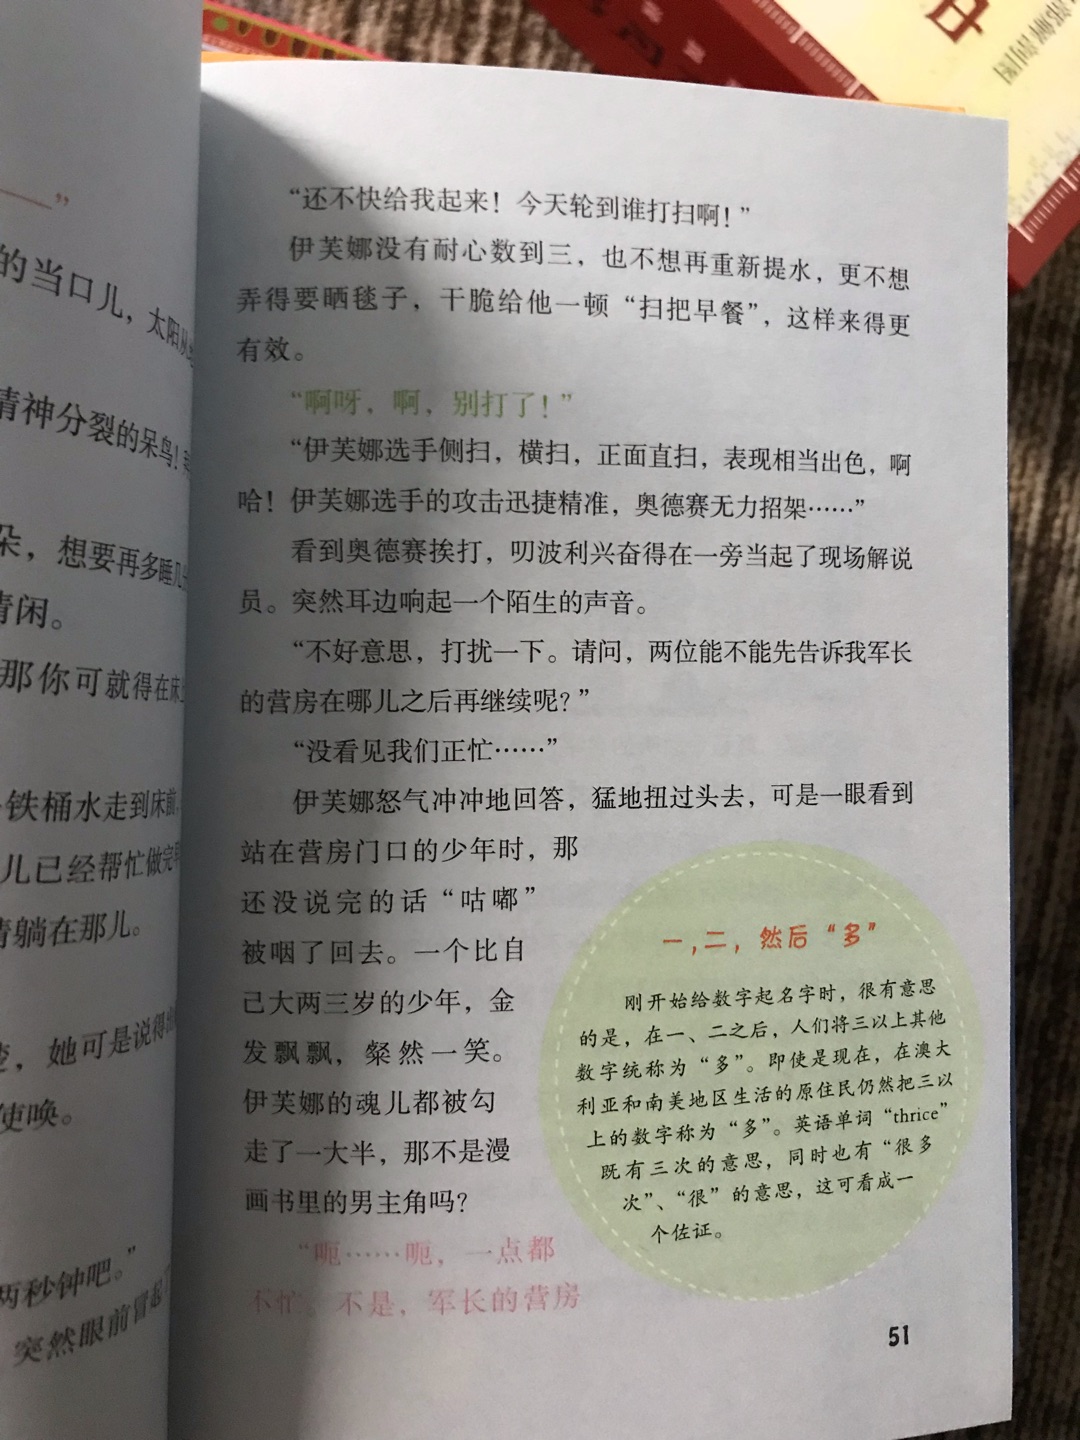 ”
的当口儿，太阳从
精神分裂的呆鸟！
朵，想要再多睡几
清闲。
那你可就得在床
铁桶水走到床前，
儿已经帮忙做完
躺在那儿。
，她可是说得
使唤。
两秒钟吧。”
突然眼前冒起
“还不快给我起来！今天轮到谁打扫啊！”
伊芙娜没有耐心数到三，也不想再重新提水，更不想
弄得要晒毯子，干脆给他一顿“扫把早餐”，这样来得更
有效。
“啊呀，啊，别打了！”
“伊芙娜选手侧扫，横扫，正面直扫，表现相当出色，啊
哈！伊芙娜选手的攻击迅捷精准，奥德赛无力招架……”
看到奥德赛挨打，叨波利兴奋得在一旁当起了现场解说
员。突然耳边响起一个陌生的声音。
“不好意思，打扰一下。请问，两位能不能先告诉我军长
的营房在哪儿之后再继续呢？”
“没看见我们正忙……”
伊芙娜怒气冲冲地回答，猛地扭过头去，可是一眼看到
站在营房门口的少年时，那
还没说完的话“咕嘟”
被咽了回去。一个比自
己大两三岁的少年，金
发飘飘，粲然一笑。
伊芙娜的魂儿都被勾
走了一大半，那不是漫
画书里的男主角吗？
“呃……呃，一点都
不忙。不是，军长的营房
一，二，然后“多”
刚开始给数字起名字时，很有意思
的是，在一、二之后，人们将三以上其他
数字统称为“多”。即使是现在，在澳大
利亚和南美地区生活的原住民仍然把三以
上的数字称为“多”。英语单词“thrice”
既有三次的意思，同时也有“很多
次”、“很”的意思，这可看成一
个佐证。
51